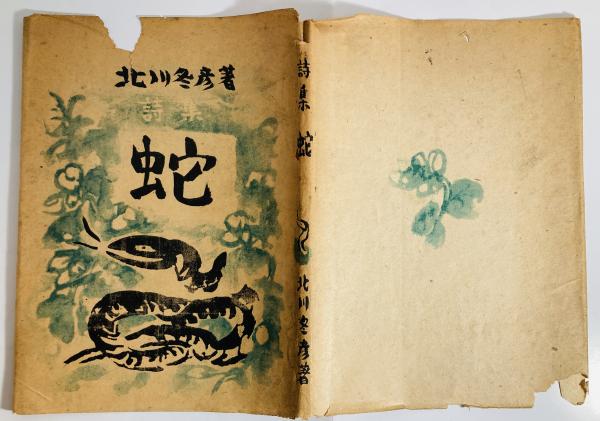 北川冬彦著
詩集
蛇
詩集 蛇 北川冬彦著